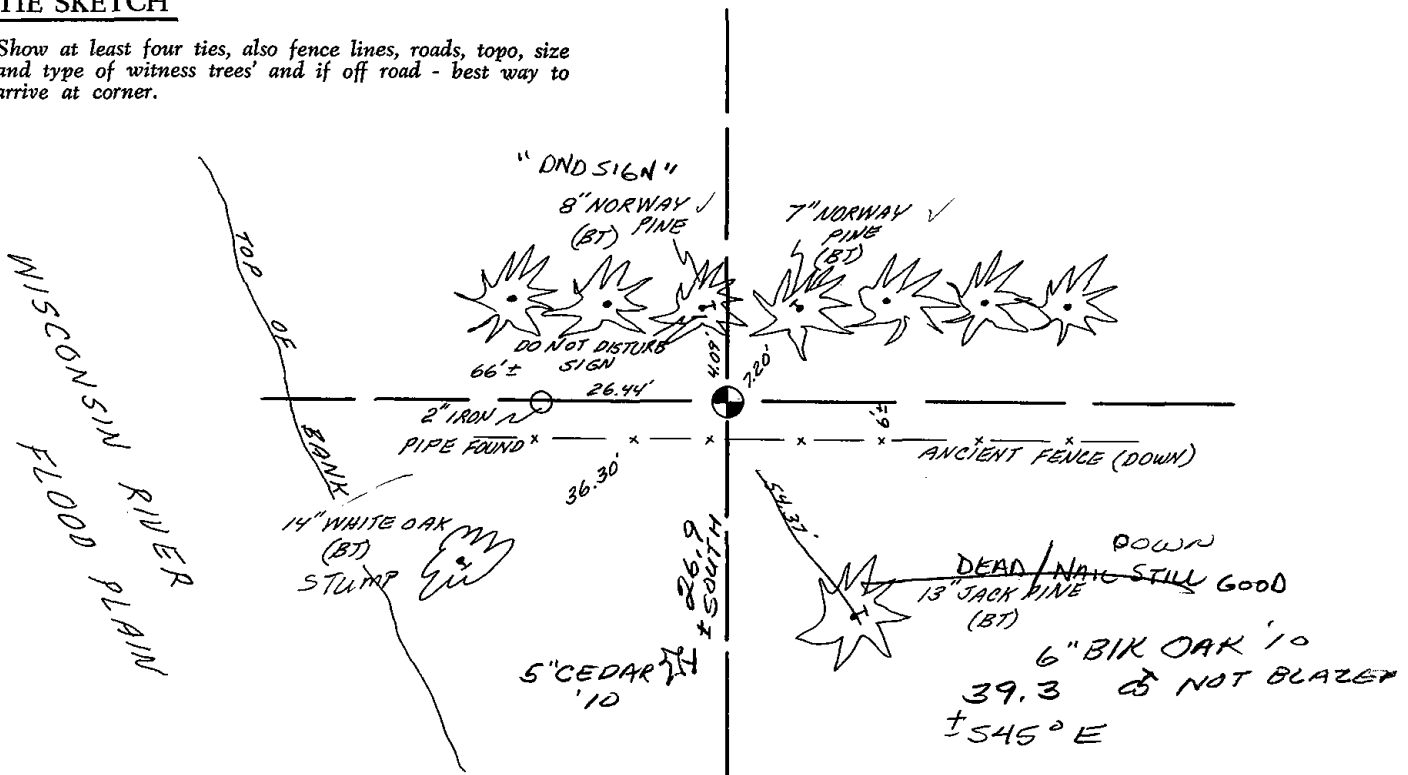 TIE SKETCH
Show at least four ties, also fence lines, roads, topo, size
and type of witness trees' and if off road - best way to
arrive at corner.
"DND SIGN"
8" NORWAY ✓
(BT) PINE
7" NORWAY ✓
PINE
(BT)
TOP OF BANK
WISCONSIN RIVER
FLOOD PLAIN
DO NOT DISTURB
SIGN
66'±
26.44'
4.09'
7.20'
2" IRON
PIPE FOUND
6'±
ANCIENT FENCE (DOWN)
36.30'
54.37'
14" WHITE OAK
(BT)
STUMP
26.9
± SOUTH
DOWN
DEAD/NAIL STILL GOOD
13" JACK PINE
(BT)
5" CEDAR
'10
6" BIK OAK '10
39.3 NOT BLAZED
± S45° E